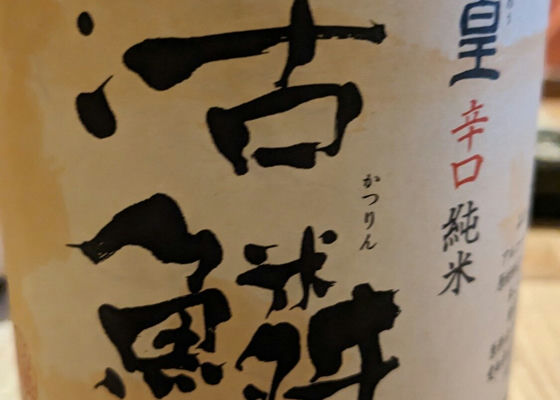 皇 辛口 純米
かつりん
活鱗